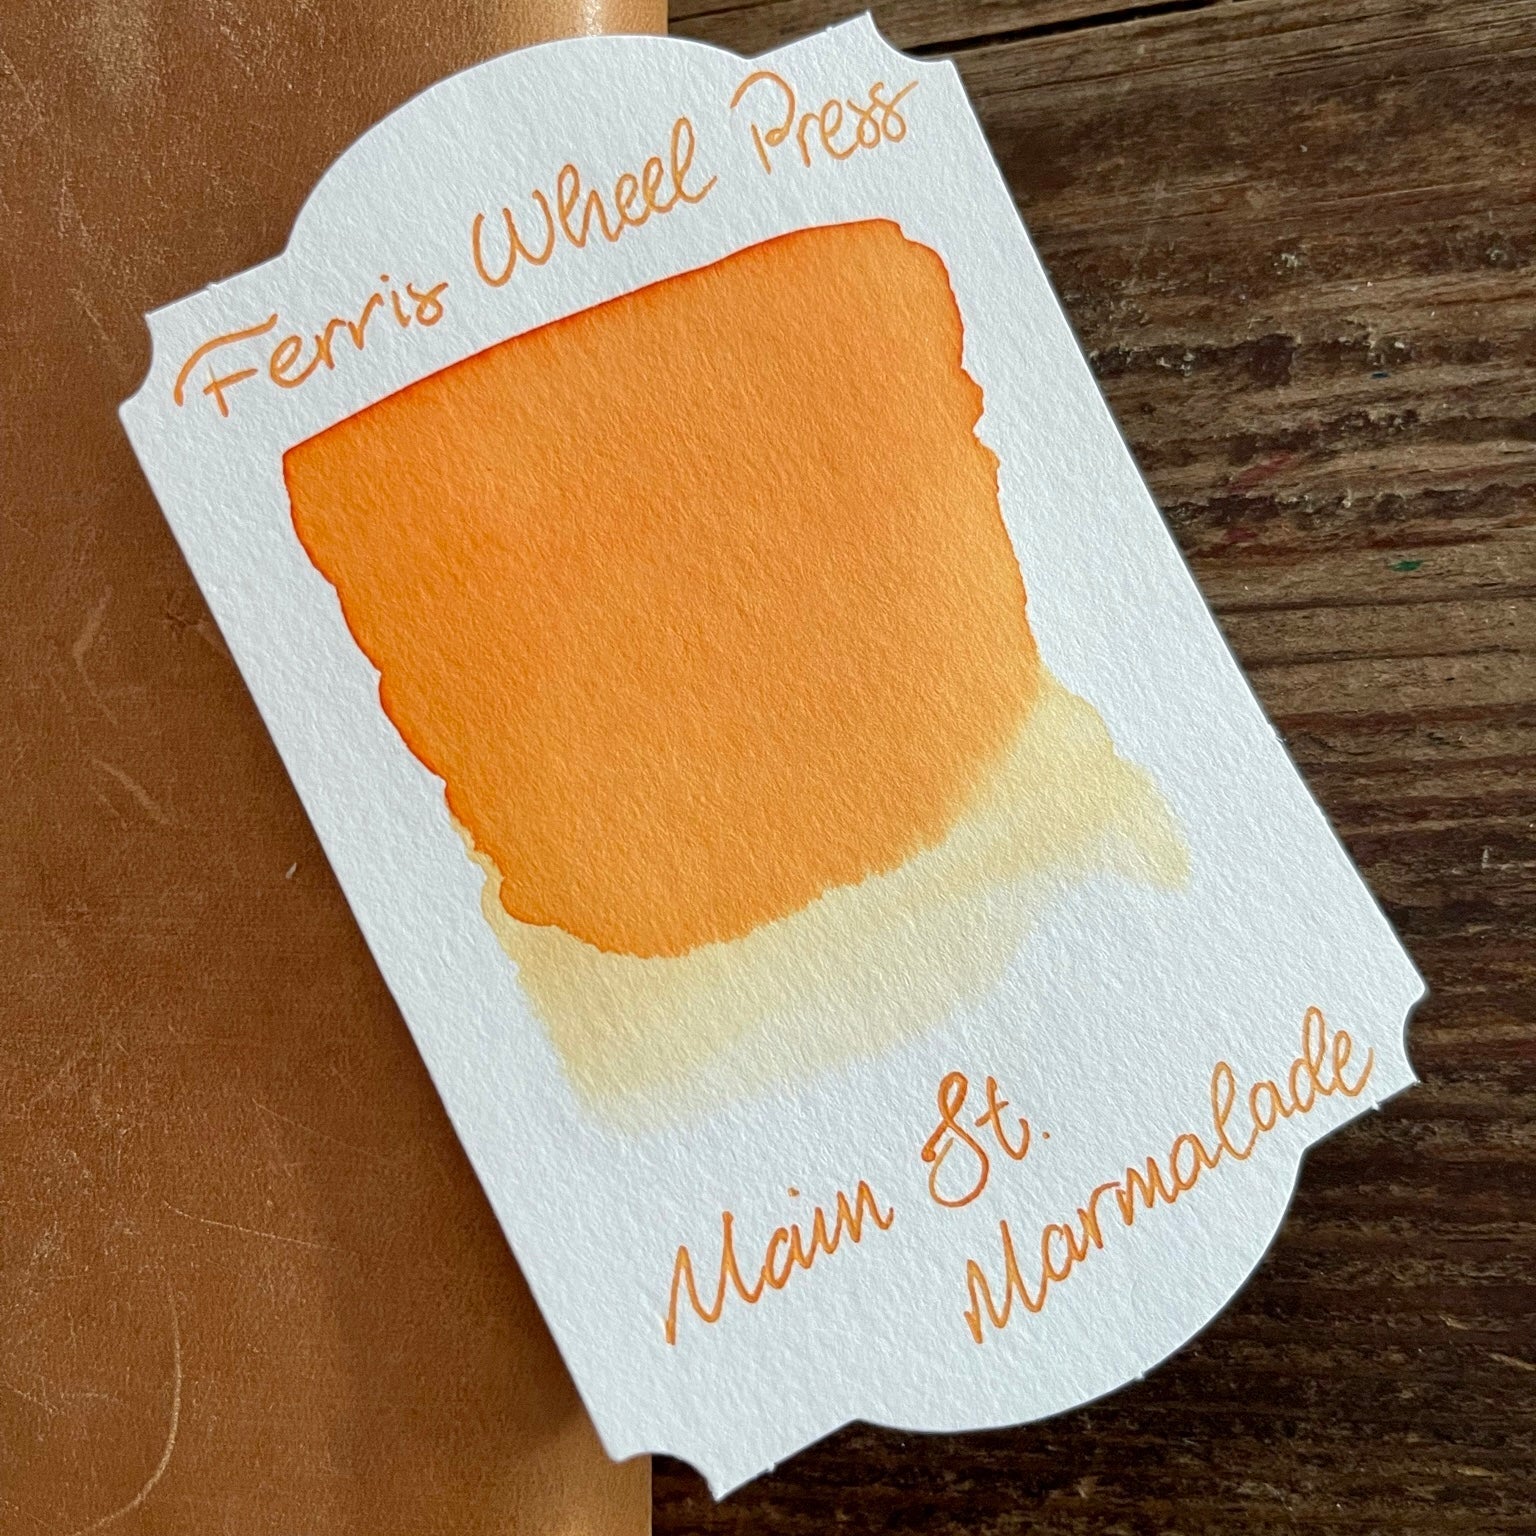 Ferris Wheel Press
Main St.
Marmalade